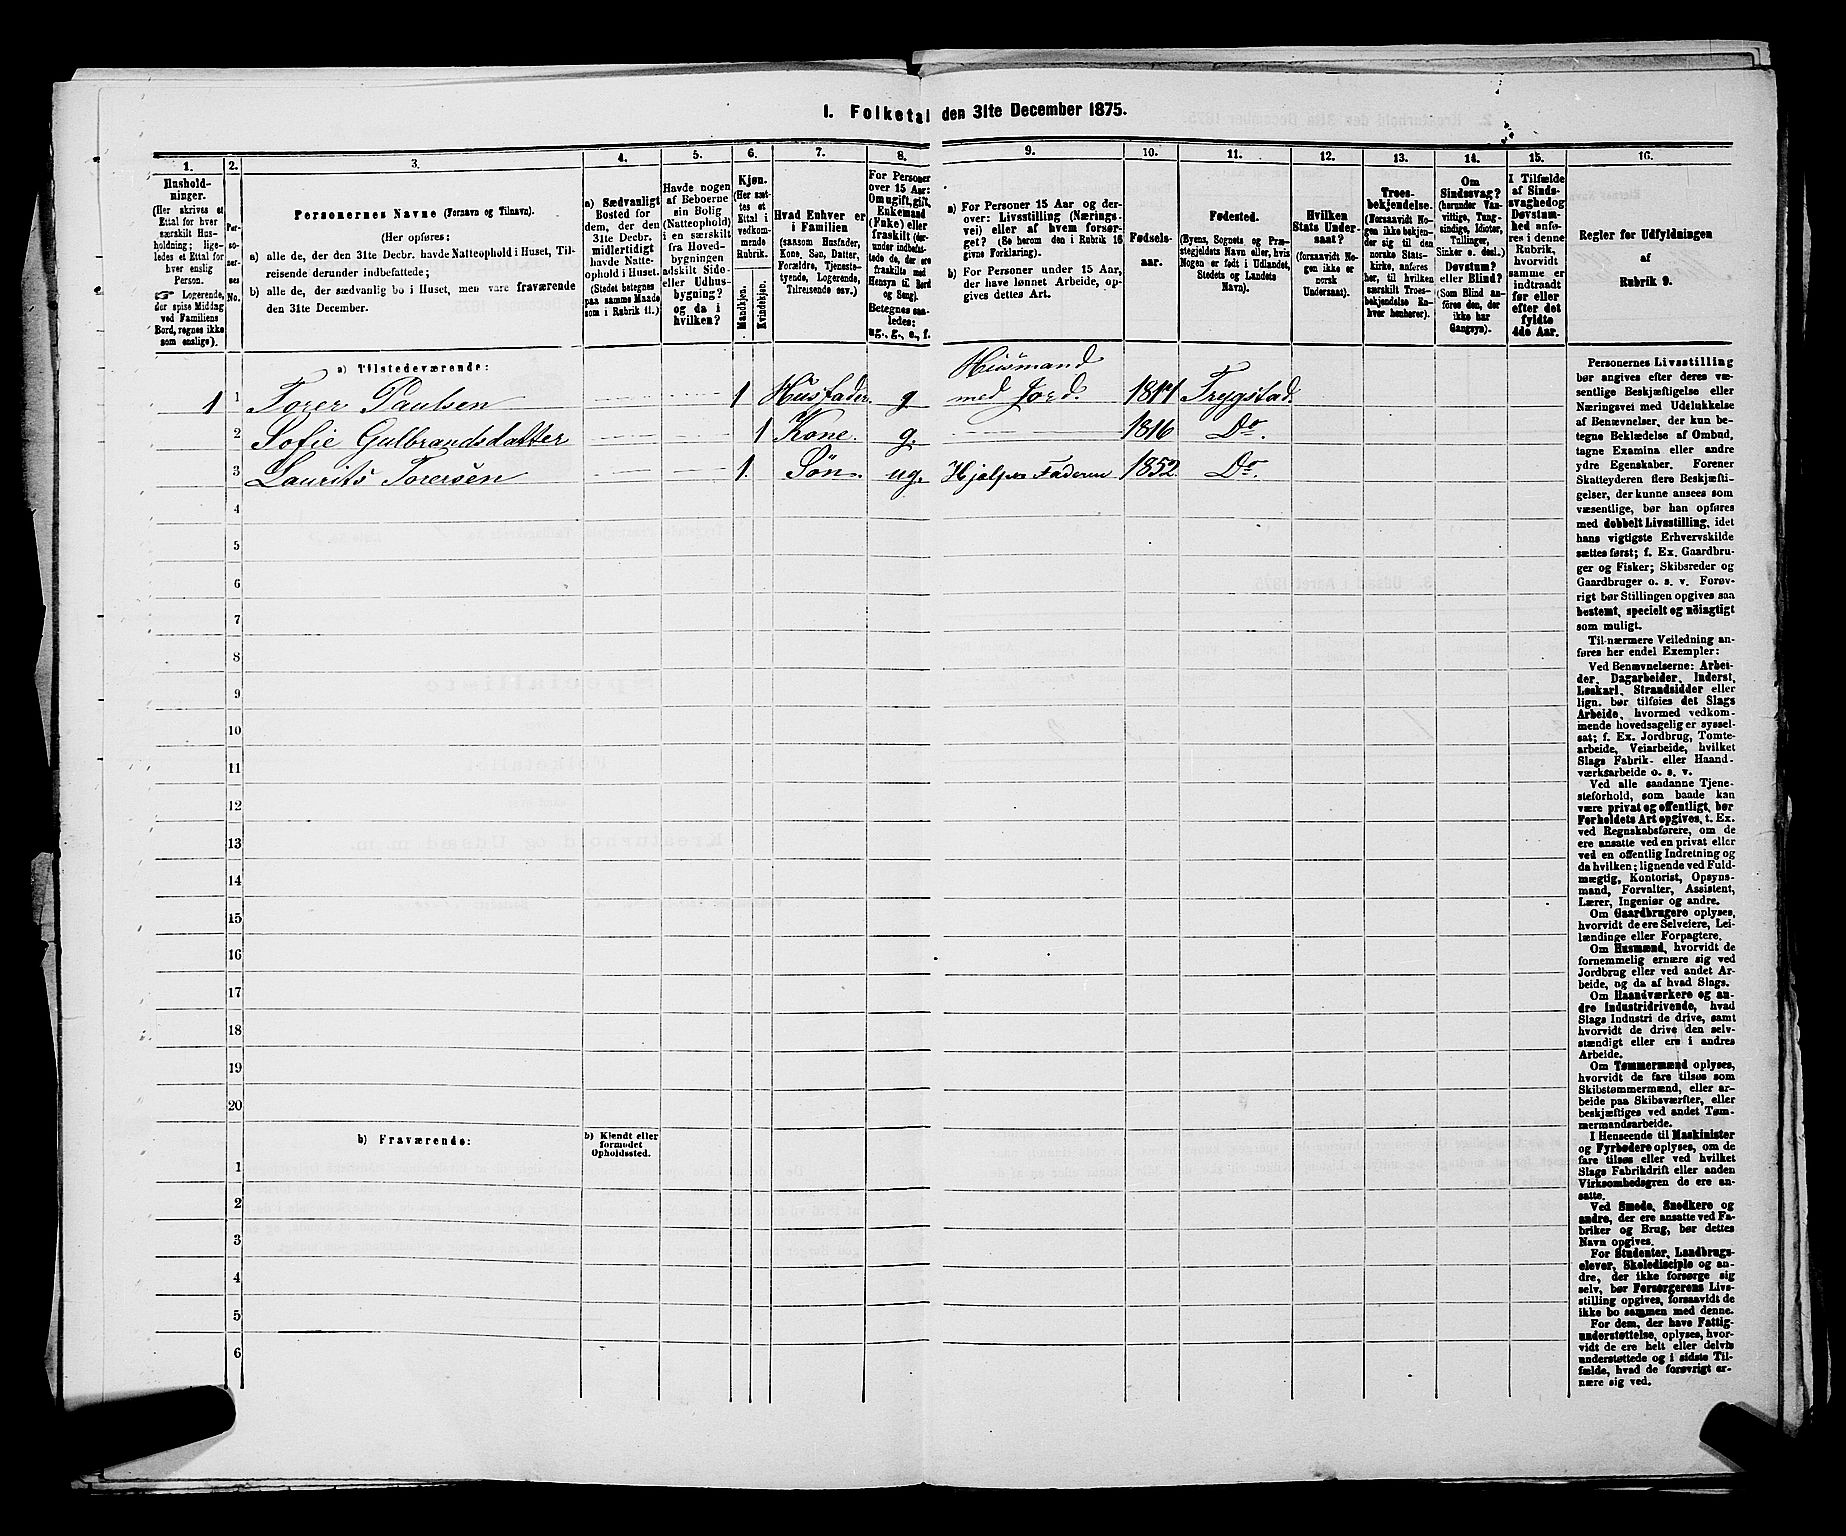 1. Folketal den 31te December 1875.
1. 2. 3. 4. 5. 6. 7. 8. 9. 10. 11. 12. 13. 14. 15. 16.
Hushold-
ninger.
(Her skrives et
Ettal for hver
særskilt Hus-
holdning; lige-
ledes et Ettal for
hver enslig
Person.
☞ Logerende,
der spise Middag
ved Familiens
Bord, regnes ikke
som enslige).
Per-
so-
ner-
nes
No.
Personernes Navne (Fornavn og Tilnavn).
(Her opføres:
a) alle de, der den 31te Decbr. havde Natteophold i Huset, Til-
reisende derunder indbefattede;
b) alle de, der sædvanlig bo i Huset, men vare fraværende
den 31te December.
a) Sædvanligt
Bosted for
dem, der den
31te Decbr.
midlertidigt
havde Natte-
ophold i Huset.
(Stedet betegnes
paa samme Maade
som i Rubrik 11.)
Havde nogen
af Beboerne
sin Bolig
(Natteophold)
i en særskilt
fra Hoved-
bygningen
adskilt Side-
eller Udhus-
bygning?
og da i
hvilken?
Kjøn.
(Her sæt-
tes et
Ettal i
vedkom-
mende
Rubrik.
Mandkjøn.
Kvindekjøn.
Hvad Enhver er
i Familien
(saasom Husfader,
Kone, Søn, Datter,
Forældre, Tjeneste-
tyende, Logerende,
Tilreisende osv.)
For Personer
over 15 Aar:
Om ugift, gift,
Enkemand
(Enke) eller
fraskilt (der-
under indbefat-
tede de, der ere
fraskilte med
Hensyn til Bord
og Seng).
Betegnes saa-
ledes:
ug., g., e., f.
a) For Personer 15 Aar og der-
over: Livsstilling (Nærings-
vei) eller af hvem forsør-
get? (Se herom den i Rubrik 16
givne Forklaring).
b) For Personer under 15 Aar,
der have lønnet Arbeide, op-
gives dettes Art.
Fødsels-
aar.
Fødested.
(Byens, Sognets og Præ-
stegjeldets Navn eller, hvis
Nogen er født i Udlandet,
Stedets og Landets
Navn).
Hvilken
Stats Under-
saat?
(forsaavidt No-
gen ikke er
norsk
Undersaat).
Troes-
bekjendelse.
(Forsaavidt No-
gen ikke bekjen-
der sig til den
norske Stats-
kirke, anføres
her, til hvilken
særskilt Troes-
bekjendelse En-
hver henhører).
Om
Sindssvag?
(herunder Van-
vittige, Tung-
sindige, Idioter,
Tullinger,
Sinker o. desl.)
Døvstum?
eller Blind?
(Som Blind an-
føres den, der
ikke har
Gangsyn).
I Tilfælde
af Sinds-
svaghed og
Døvstum-
hed anfø-
res i denne
Rubrik,
hvorvidt
samme er
indtraadt
før eller
efter det
fyldte
4de Aar.
Regler for Udfyldningen
af
Rubrik 9.
a) Tilstedeværende:
Husmand
1 1 Torer Paulsen 1 Husfader. g med Jord. Trygstad.
2 Sofie Gulbrandsdatter 1 Kone. g. 1816 Do.
3 Laurits Torersen 1. Søn. ug. Hjælper Faderen 1852 Do.
4
5
6
7
8
9
10
11
12
13
14
15
16
17
18
19
20
b) Fraværende:
b) Kjendt eller
formodet
Opholdssted.
1
2
3
4
5
6
Personernes Livsstilling
bør angives efter deres væ-
sentlige Beskjæftigelse eller
Næringsvei med Udelukkelse
af Benævnelser, der kun be-
tegne Beklædelse af Ombud,
tagne Examina eller andre
ydre Egenskaber. Forener
Skatteyderen flere Beskjæfti-
gelser, der kunne ansees som
væsentlige, bør han opføres
med dobbelt Livsstilling, idet
hans vigtigste Erhvervskilde
sættes først; f. Ex. Gaardbru-
ger og Fisker; Skibsreder og
Gaardbruger o. s. v. Forøv-
rigt bør Stillingen opgives saa
bestemt, specielt og nöiagtigt
som muligt.
Til nærmere Veiledning an-
føres her endel Exempler:
Ved Benævnelserne: Arbei-
der, Dagarbeider, Inderst,
Løskarl, Strandsidder eller
lign. bør tilføies det Slags
Arbeide, hvormed vedkom-
mende hovedsagelig er syssel-
sat; f. Ex. Jordbrug, Tomte-
arbeide, Veiarbeide, hvilket
Slags Fabrik- eller Haand-
værksarbeide o. s. v.
Ved alle saadanne Tjene-
steforhold, som baade kan
være privat og offentligt, bør
Forholdets Art opgives, t. Ex.
ved Regnskabsførere, om de
ere ansatte ved en privat eller
ved en offentlig Indretning og
da hvilken; lignende ved Fuld-
mægtig, Kontorist, Opsyns-
mand, Forvalter, Assistent,
Lærer, Ingeniør og andre.
Om Gaardbrugere oplyses,
hvorvidt de ere Selveiere, Lei-
lændinge eller Forpagtere.
Om Husmænd, hvorvidt de
fornemmelig ernære sig ved
Jordbrug eller ved andet Ar-
beide, og da af hvad Slags.
Om Haandværkere og an-
dre industridrivende, hvad
Slags Industri de drive, samt
hvorvidt de drive den selv-
stændigt eller ere i andres
Arbeide.
Om Tømmermænd oplyses,
hvorvidt de fare tilsøs som
Skibstømmermænd, eller ar-
beide paa Skibsværfter, eller
beskjæftiges ved andet Tøm-
mermandsarbeide.
I Henseende til Maskinister
og Fyrbødere oplyses, om de
fare tilsøs eller ved hvilket
Slags Fabrikdrift eller anden
Virksomhedsgren de ere an-
satte.
Ved Smede, Snedkere og
andre, der ere ansatte ved Fa-
briker og Brug, bør dettes
Navn opgives.
For Studenter, Landbrugs-
elever, Skoledisciple og an-
dre, der ikke forsørge sig
selv, bør Forsørgerens Livs-
stilling opgives, forsaavidt de
ikke bo sammen med denne.
For dem, der have Fattig-
understøttelse, oplyses, hvor-
vidt de ere helt eller delvis
understøttede og i sidste Til-
fælde, hvad de forøvrigt er-
nære sig ved.